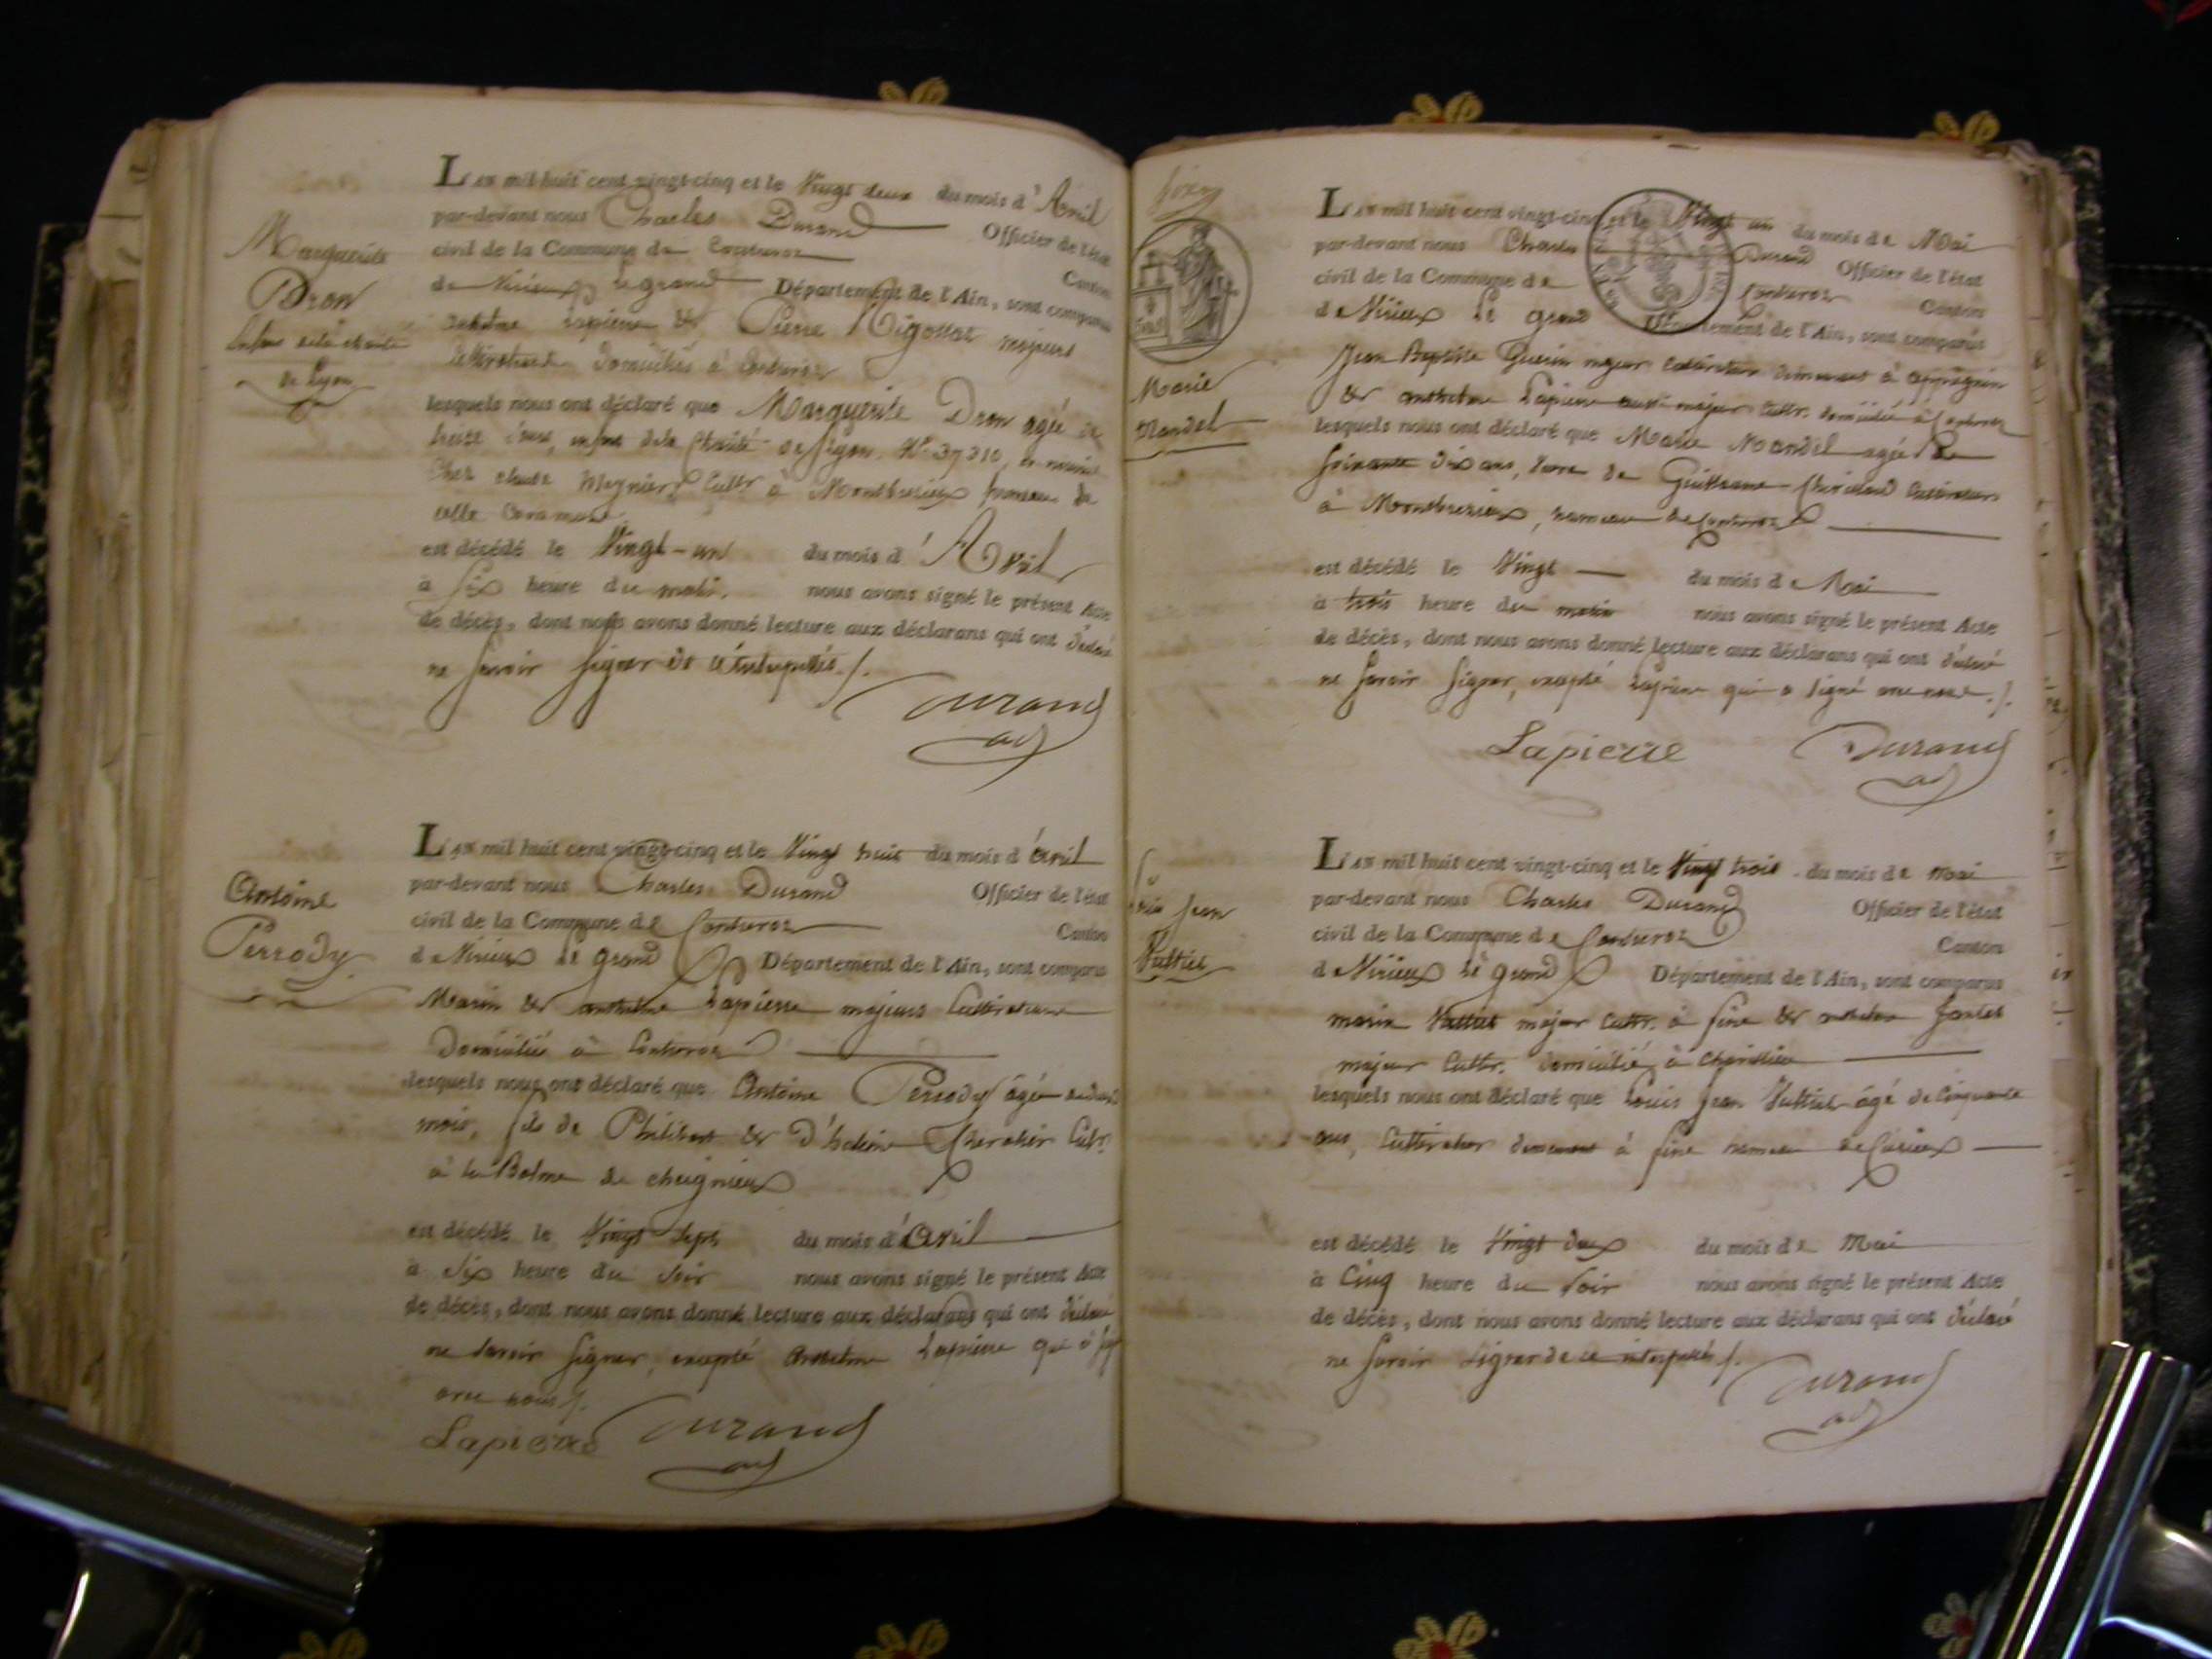 Marguerite
Dron
de Lyon
L'an mil huit cent vingt-cinq et le Vingt deux du mois d'Avril
par-devant nous Charles Durand Officier de l'état
civil de la Commune de Contrevoz Canton
de Virieux le grand Département de l'Ain, sont comparus
anthelme Lapierre & Pierre majeurs
Cultivateurs domiciliés à Contrevoz
lesquels nous ont déclaré que Marguerite Dron agée de
treize ans, enfant de la Charité de Lyon, N° 37310, en nourrice
chez claude Meynier, Cultr à Montbreizieux hameau de
celle Commune
est décédé le Vingt-un du mois d'Avril
à Six heure du matin. nous avons signé le présent Acte
de décès, dont nous avons donné lecture aux déclarans qui ont déclaré
ne Savoir Signer de ce interpellés./.
Durand
adj
Antoine
Perrody
L'an mil huit cent vingt-cinq et le Vingt huit du mois d'avril
par-devant nous Charles Durand Officier de l'état
civil de la Commune de Contrevoz Canton
de Virieux le grand Département de l'Ain, sont comparus
Marin & anthelme Lapierre majeurs Cultivateurs
Domiciliés à Contrevoz
lesquels nous ont déclaré que Antoine Perrody âgé de
mois, fils de Philibert & D'
à la Balme de cheignieux
est décédé le Vingt Sept du mois d'avril
à Six heure du Soir nous avons signé le présent Acte
de décès, dont nous avons donné lecture aux déclarans qui ont déclaré
ne Savoir Signer, excepté Anthelme Lapierre qui a
avec nous./.
Lapierre Durand
adj
Marie
Mandel
L'an mil huit cent vingt-cinq et le Vingt un du mois de Mai
par-devant nous Charles Durand Officier de l'état
civil de la Commune de Contrevoz Canton
de Virieux le grand Département de l'Ain, sont comparus
Jean Baptiste Guerin majeur Cultivateur demeurant à appregnin
& anthelme Lapierre aussi majeur Cultr. domicilié à Contrevoz
lesquels nous ont déclaré que Marie Mandel agée de
Soixante dix ans, Veuve de Guillaume Cultivateur
à Montbreizieux, hameau de Contrevoz
est décédé le Vingt du mois de Mai
à trois heure du matin nous avons signé le présent Acte
de décès, dont nous avons donné lecture aux déclarans qui ont déclaré
ne Savoir Signer, excepté Lapierre qui a Signé avec nous./.
Lapierre Durand
adj
Louis Jean
Vuttiet
L'an mil huit cent vingt-cinq et le Vingt trois du mois de mai
par-devant nous Charles Durand Officier de l'état
civil de la Commune de Contrevoz Canton
de Virieux le grand Département de l'Ain, sont comparus
marin Vuttiet majeur Cultr. à fine & anthelme
majeur Cultr. domicilié à
lesquels nous ont déclaré que Louis Jean Vuttiet âgé de Cinquante
ans, Cultivateur demeurant à fine hameau de Cuzieux
est décédé le Vingt deux du mois de Mai
à Cinq heure du Soir nous avons signé le présent Acte
de décès, dont nous avons donné lecture aux déclarans qui ont déclaré
ne Savoir Signer de ce interpellés./.
Durand
adj